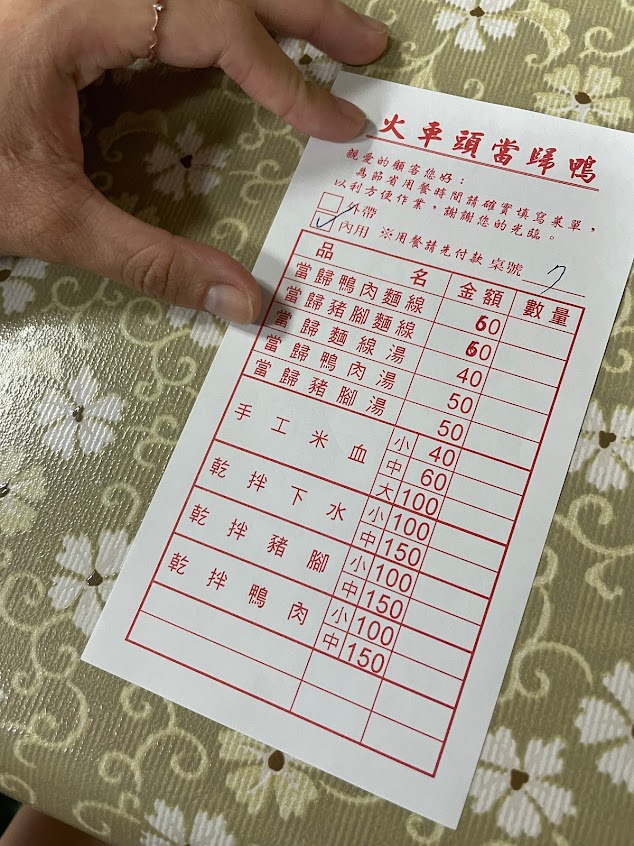 火車頭當歸鴨
親愛的顧客您好：
為節省用餐時間請確實填寫菜單，
以利方便作業，謝謝您的光臨。
外帶
內用 ※用餐請先付款 桌號 7
品名 金額 數量
當歸鴨肉麵線 60
當歸豬腳麵線 60
當歸麵線湯 40
當歸鴨肉湯 50
當歸豬腳湯 50
手工米血 小 40
中 60
大 100
乾拌下水 小 100
中 150
乾拌豬腳 小 100
中 150
乾拌鴨肉 小 100
中 150